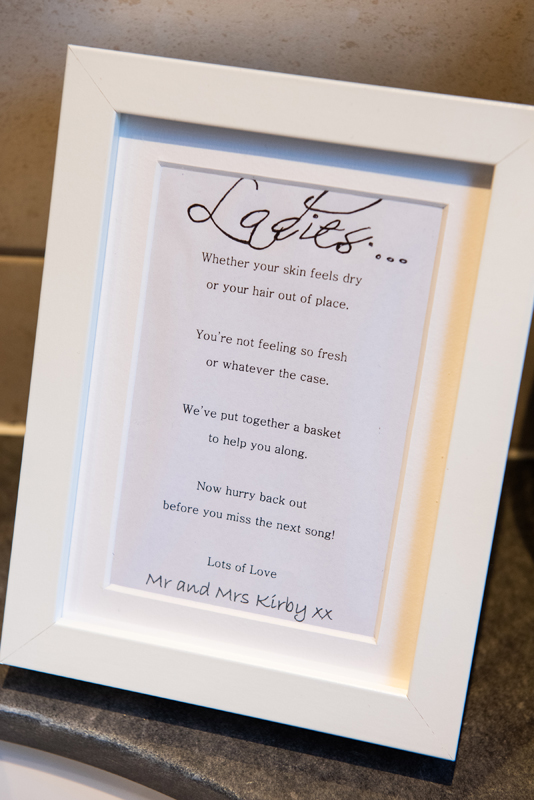 Ladies...
Whether your skin feels dry
or your hair out of place.
You're not feeling so fresh
or whatever the case.
We've put together a basket
to help you along.
Now hurry back out
before you miss the next song!
Lots of Love
Mr and Mrs Kirby xx